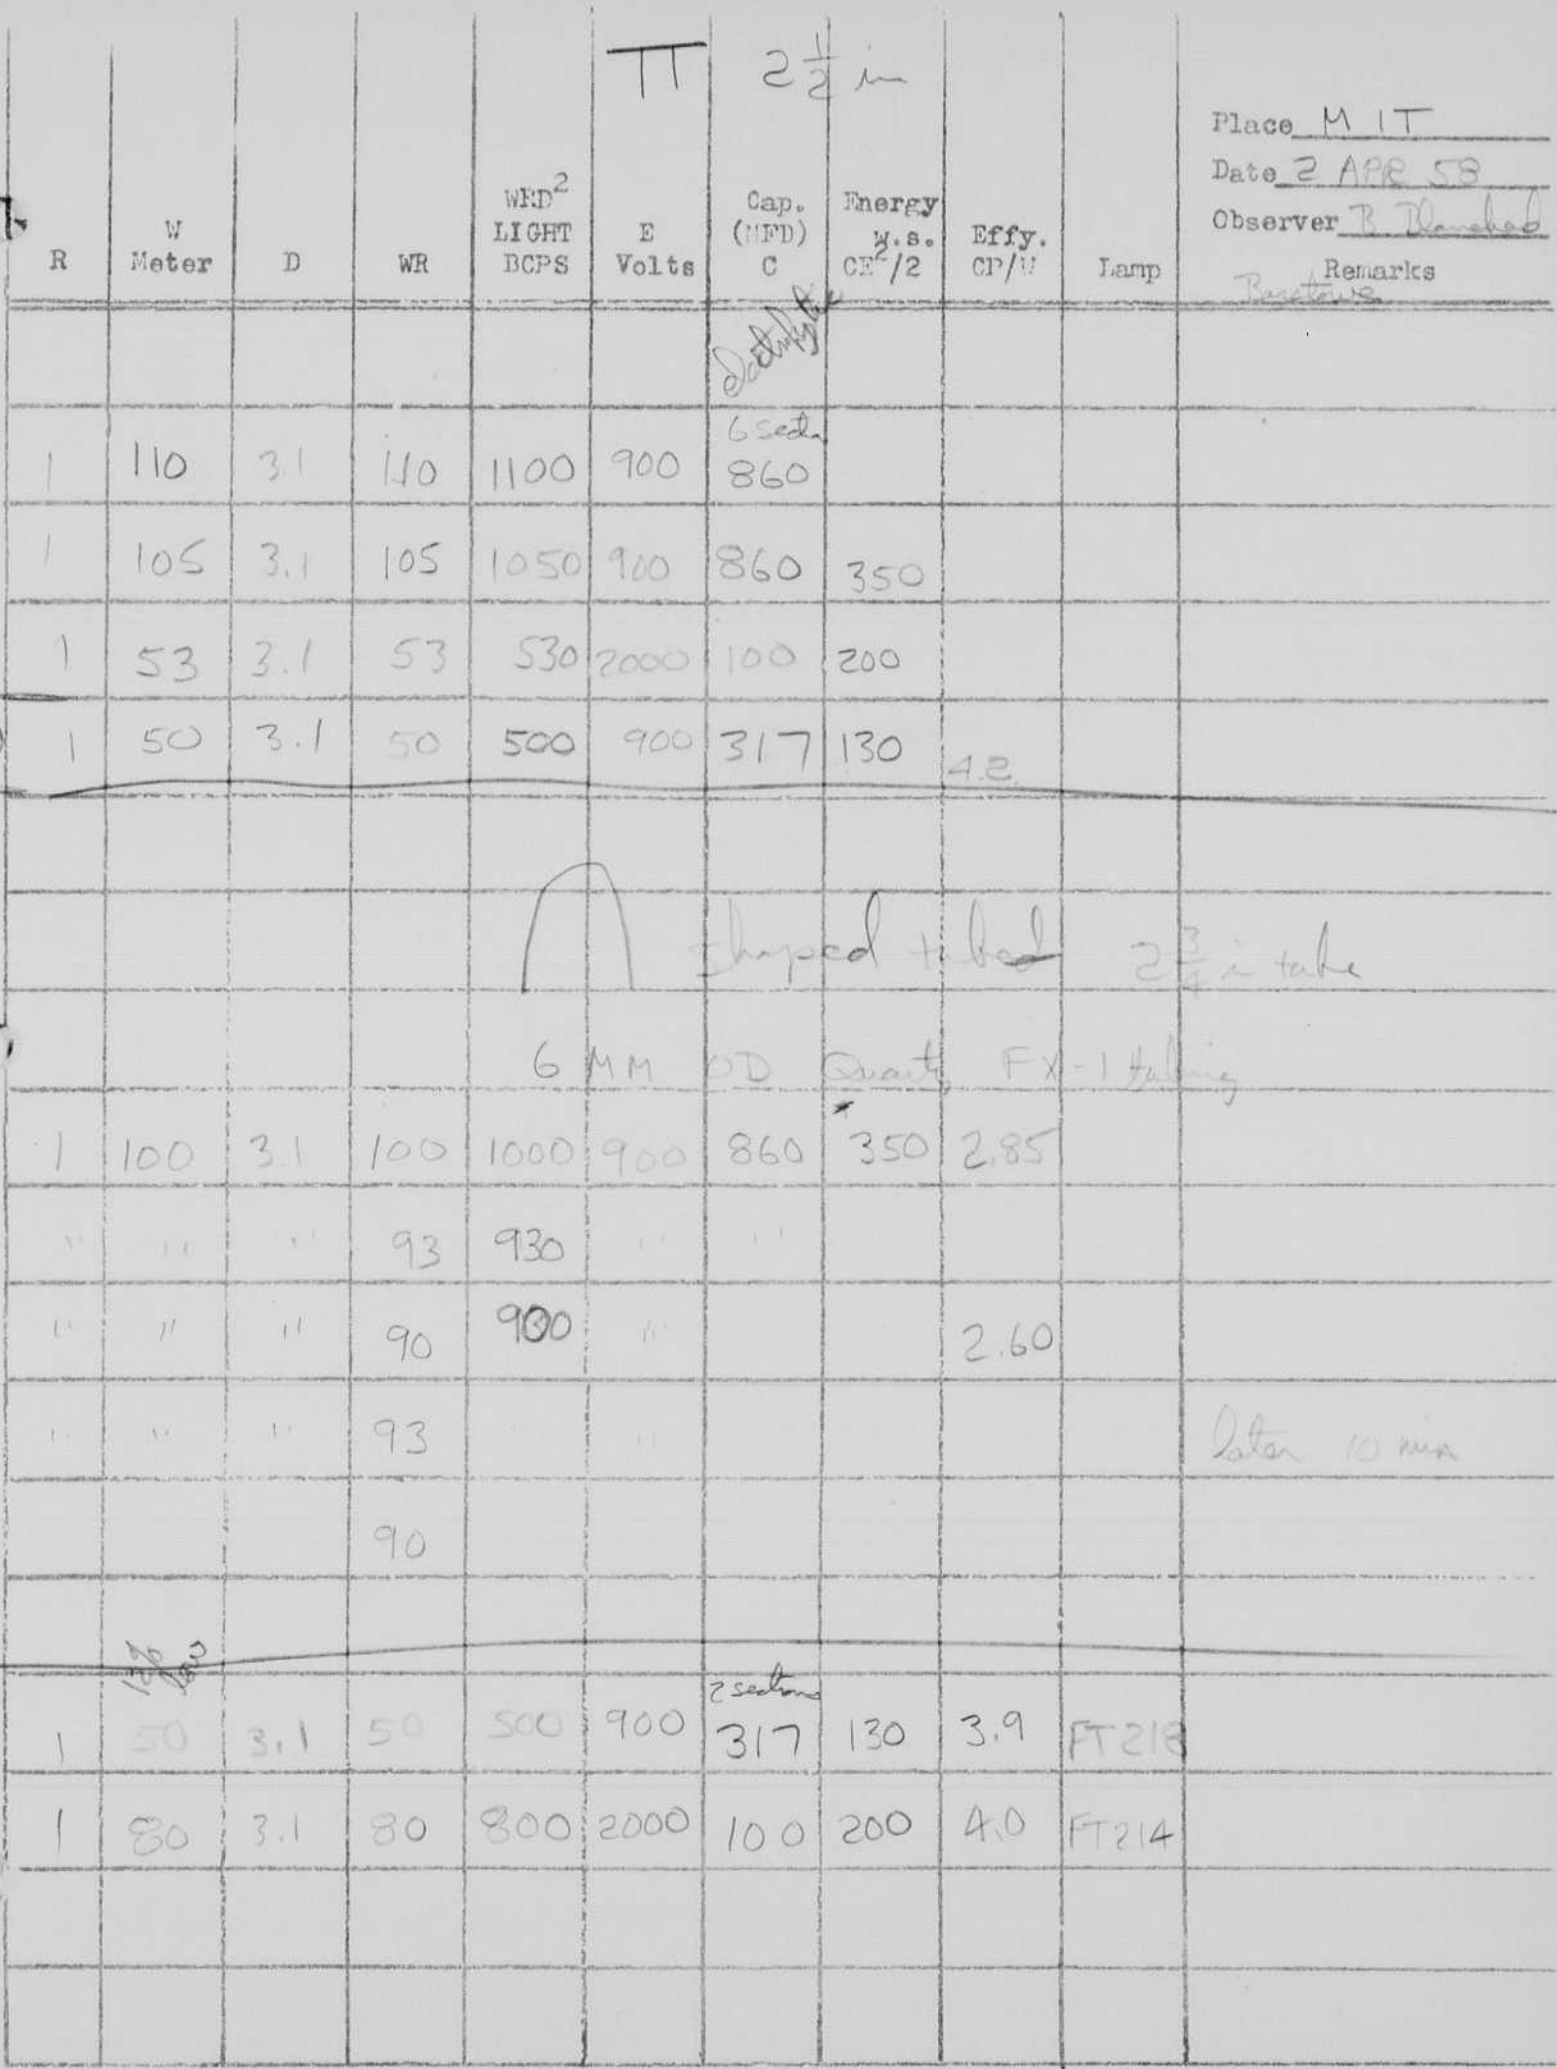 2 1/2 in
Place MIT
Date 2 APR 58
Observer B.
R W Meter D WR WRD² LIGHT BCPS E Volts Cap. (MFD) C Energy w.s. CE²/2 Effy. CP/W Lamp Remarks
6 sect.
1 110 3.1 110 1100 900 860
1 105 3.1 105 1050 900 860 350
1 53 3.1 53 530 2000 100 200
1 50 3.1 50 500 900 317 130 4.2
shaped tube 2 3/4 in tube
6 MM OD Quartz FX-1 tubing
1 100 3.1 100 1000 900 860 350 2.85
" " " 93 930 " "
" " " 90 900 " 2.60
" " " 93 " later 10 min
90
low
2 sections
1 50 3.1 50 500 900 317 130 3.9 FT218
1 80 3.1 80 800 2000 100 200 4.0 FT214